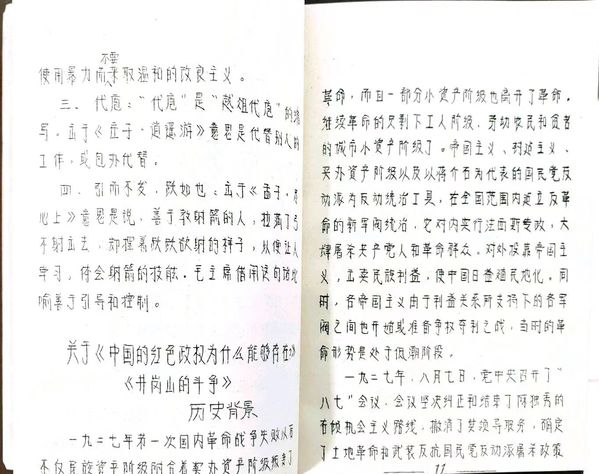 不要
使用暴力而采取温和的改良主义。
三、代庖：“代庖”是“越俎代庖”的缩
写。出于《庄子·逍遥游》意思是代替别人的
工作，或包办代替。
四、引而不发，跃如也：出于《孟子，尽
心上》意思是说，善于教射箭的人，拉满了弓
不射出去，却摆着跃跃欲射的样子，从使让人
学习，体会射箭的技能。毛主席借用这句话比
喻善于引导和控制。
关于《中国的红色政权为什么能够存在》
《井岗山的斗争》
历史背景
一九二七年第一次国内革命战争失败以后
不仅民族资产阶级附合着买办资产阶级叛卖了
革命，而且一部分小资产阶级也离开了革命。
继续革命的只剩下工人阶级、劳动农民和贫苦
的城市小资产阶级了。帝国主义、封建主义、
买办资产阶级以及以蒋介石为代表的国民党反
动派为反动统治工具，在全国范围内建立反革
命的新军阀统治，它对内实行法西斯专政，大
肆屠杀共产党人和革命群众，对外投靠帝国主
义，出卖民族利益，使中国日益殖民地化。同
时，各帝国主义由于利益关系所支持下的各军
阀之间也开始或准备争权夺利之战，当时的革
命形势是处于低潮阶段。
一九二七年，八月七日，党中央召开了“
八七”会议，会议坚决纠正和结束了陈独秀的
右倾机会主义路线，撤消了其领导服务，确定
了土地革命和武装反抗国民党反动派屠杀政策
11